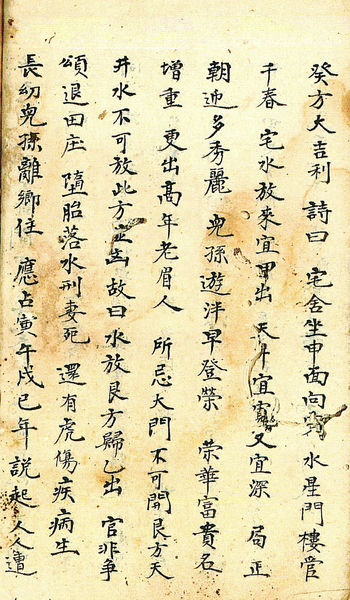 癸方大吉利 詩曰 宅舍坐申面向 水星門樓管
千春 宅水放來宜甲出 天井宜 又宜深 局正
朝迎多秀麗 兒孫遊泮早登榮 榮華富貴名
增重 更出高年老眉人 所忌大門不可開艮方天
井水不可放此方 凶 故曰 水放艮方歸乙出 官非爭
頌退田庄 墮胎落水刑妻死 還有虎傷疾病生
長幼兒孫離鄉住 應占寅午戌巳年 說起人人遭